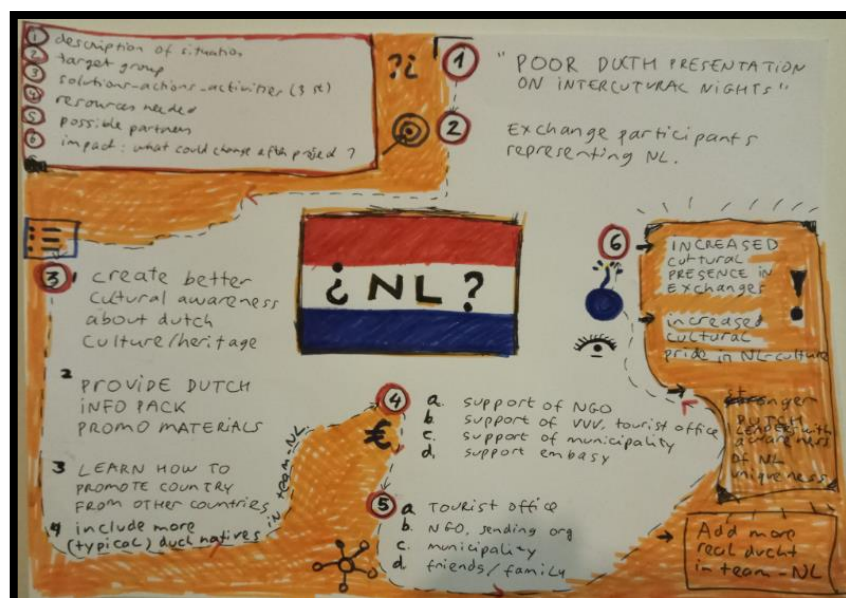 1 description of situation
2 target group
3 solutions-actions-activities (3 st)
4 resources needed
5 possible partners
6 impact: what could change after project ?
?¿
1 "POOR DUCTH PRESENTATION
ON INTERCUTURAL NIGHTS"
2 Exchange participants
representing NL.
¿NL?
3 1 create better
cultural awareness
about dutch
culture/heritage
2 PROVIDE DUTCH
INFO PACK
PROMO MATERIALS
3 LEARN HOW TO
PROMOTE COUNTRY
FROM OTHER COUNTRIES
4 include more
(typical) duch natives
in team-NL
4 €
a. support of NGO
b. support of VVV, tourist office
c. support of municipality
d. support embasy
5 a TOURIST OFFICE
b. NGO, sending org
c. municipality
d. friends/family
6 → INCREASED
cultural
PRESENCE IN
EXCHANGES
!
→ increased
cultural
pride in NL-culture
→ stronger
DUTCH
awareness
OF NL
uniqueness
→ Add more
real ducht
in team-NL